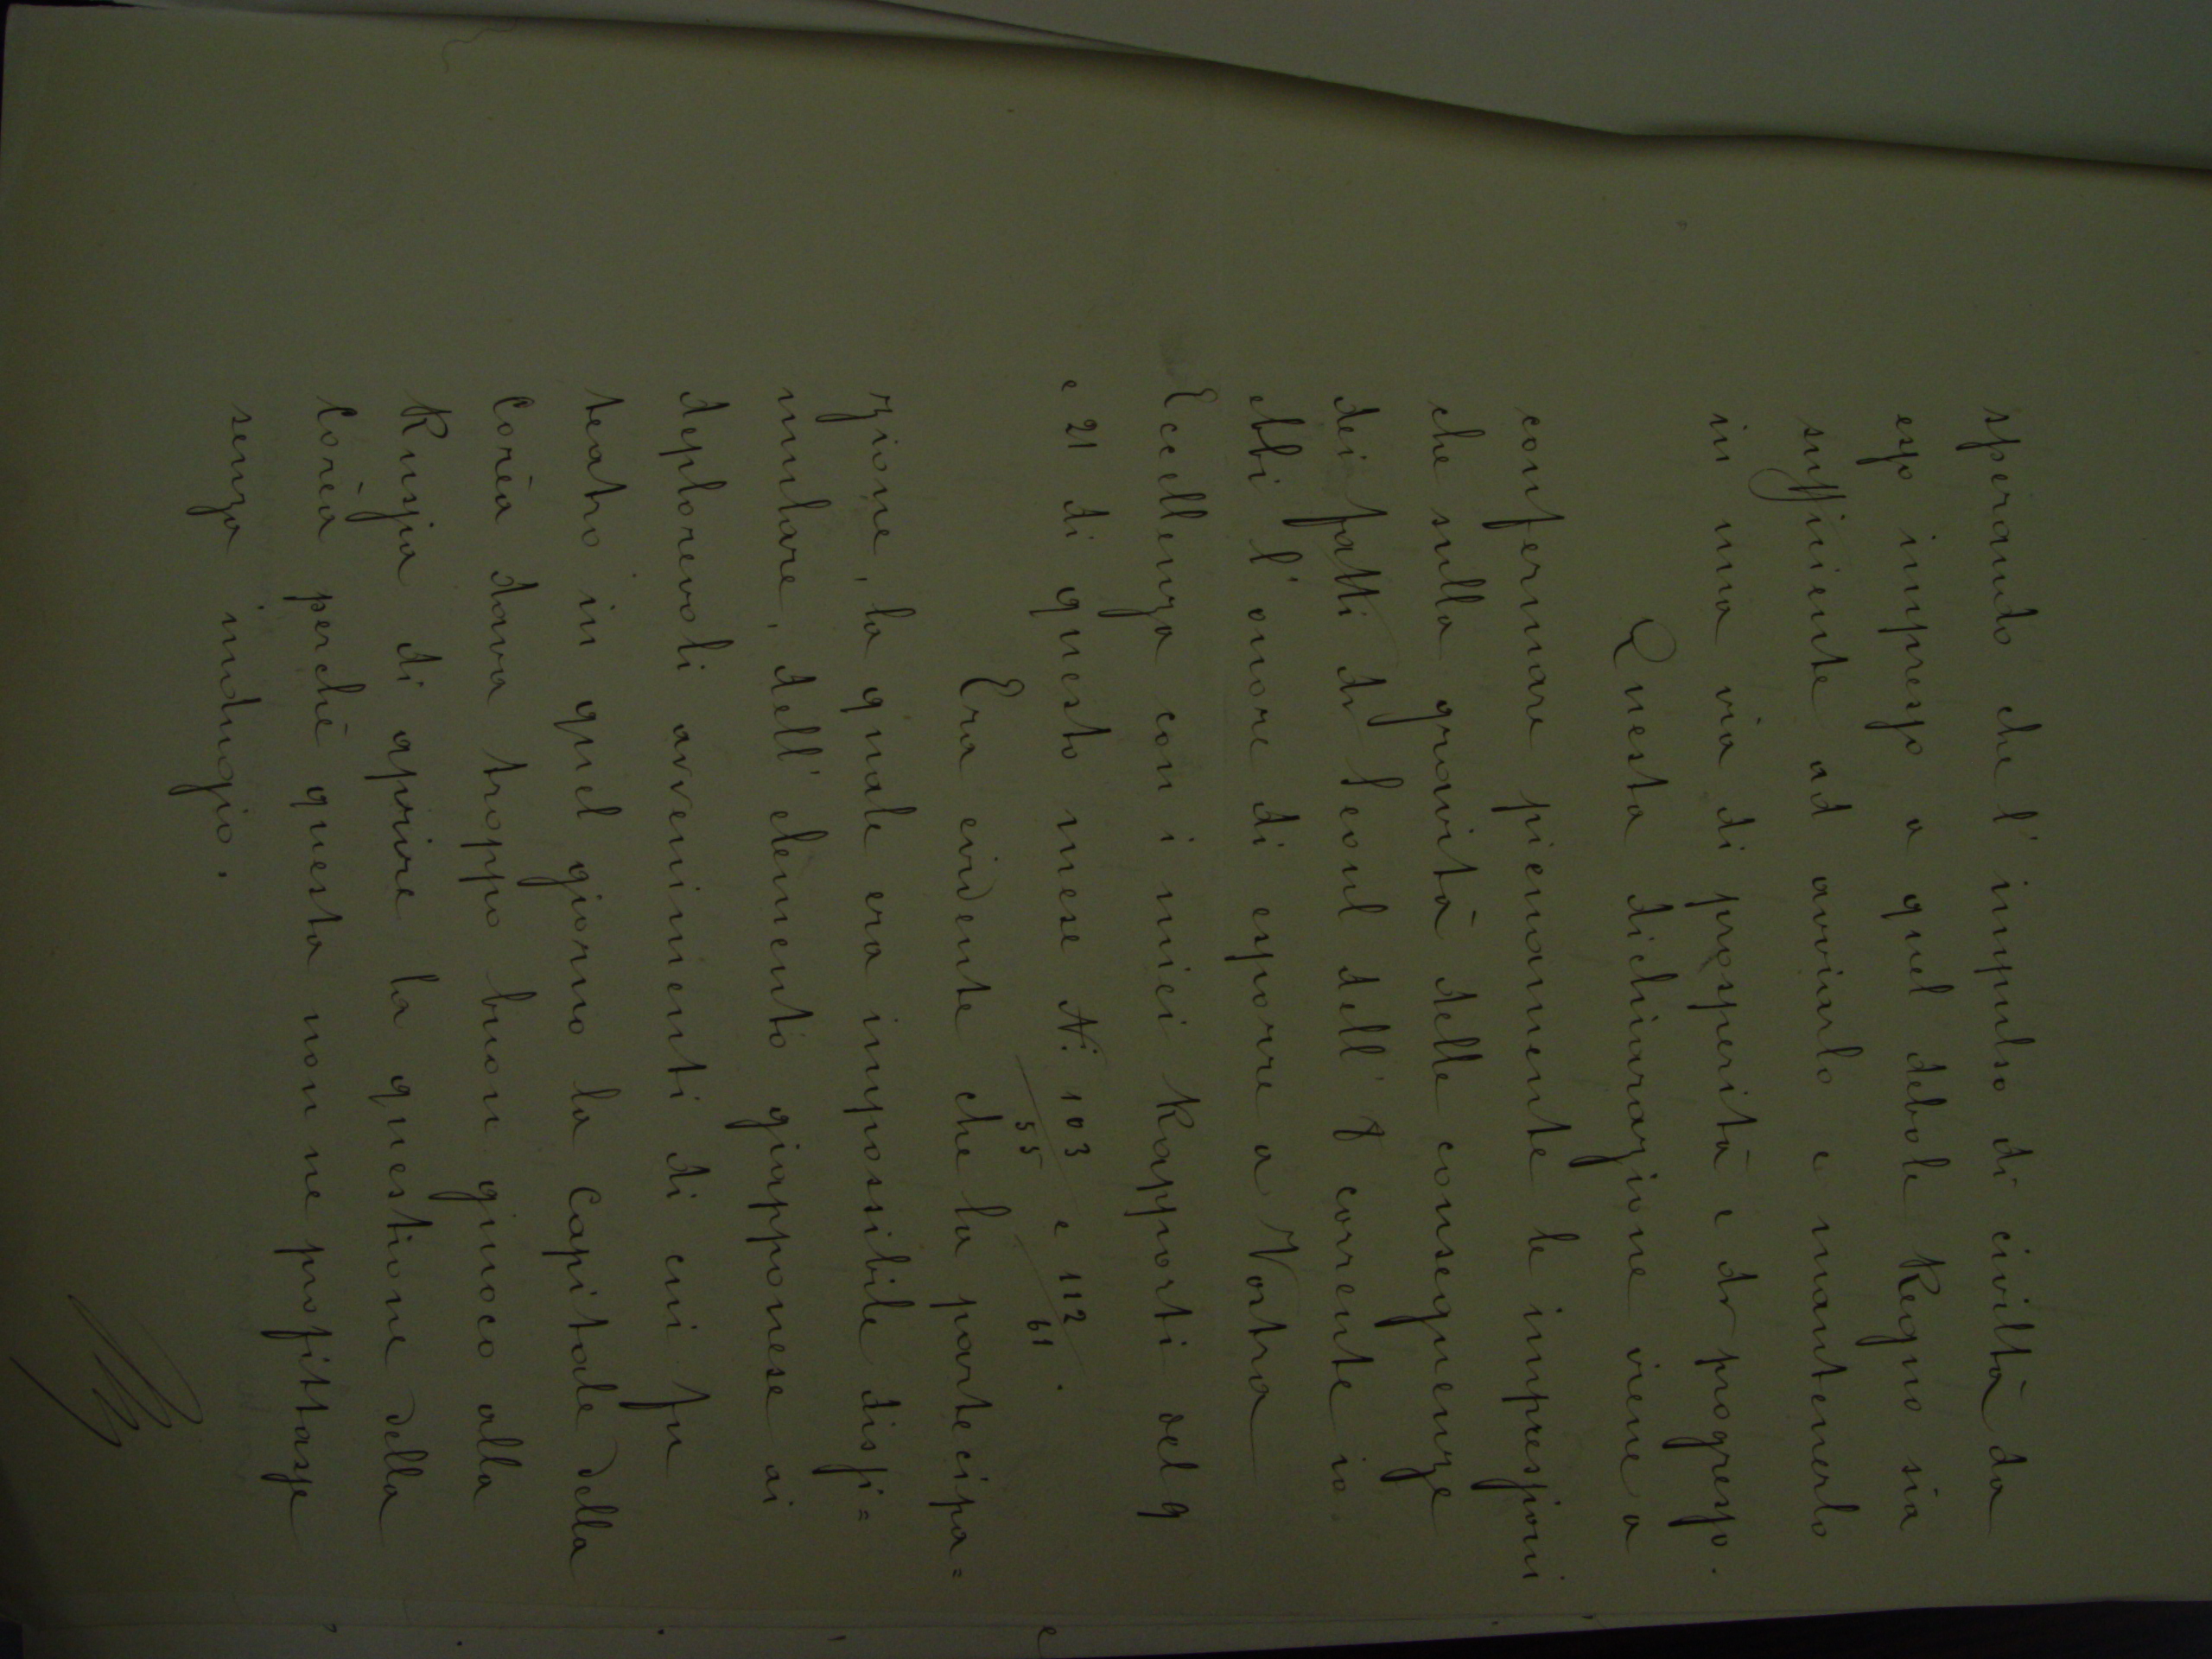 sperando che l'impulso di civiltà da
esso impresso a quel debole Regno sia
suffiente ad avviarlo e mantenerlo
in una via di prosperità e di progresso.
Questa dichiarazione viene a
confermare pienamente le impressioni
che sulla gravità delle conseguenze
dei fatti di Seoul dell' 8 corrente io
ebbi l'onore di esporre a Vostra
Eccellenza con i miei Rapporti del 9
e 21 di questo mese N. 103/55 e 112/61.
Era evidente che la partecipa=
zione, la quale era impossibile dissi=
mulare, dell' elemento giapponese ai
deplorevoli avvenimenti di cui fu
teatro in quel giorno la Capitale della
Corèa dava troppo buon giuoco alla
Russia di aprire la questione della
Corèa perchè questa non ne profittasse
senza indugio.